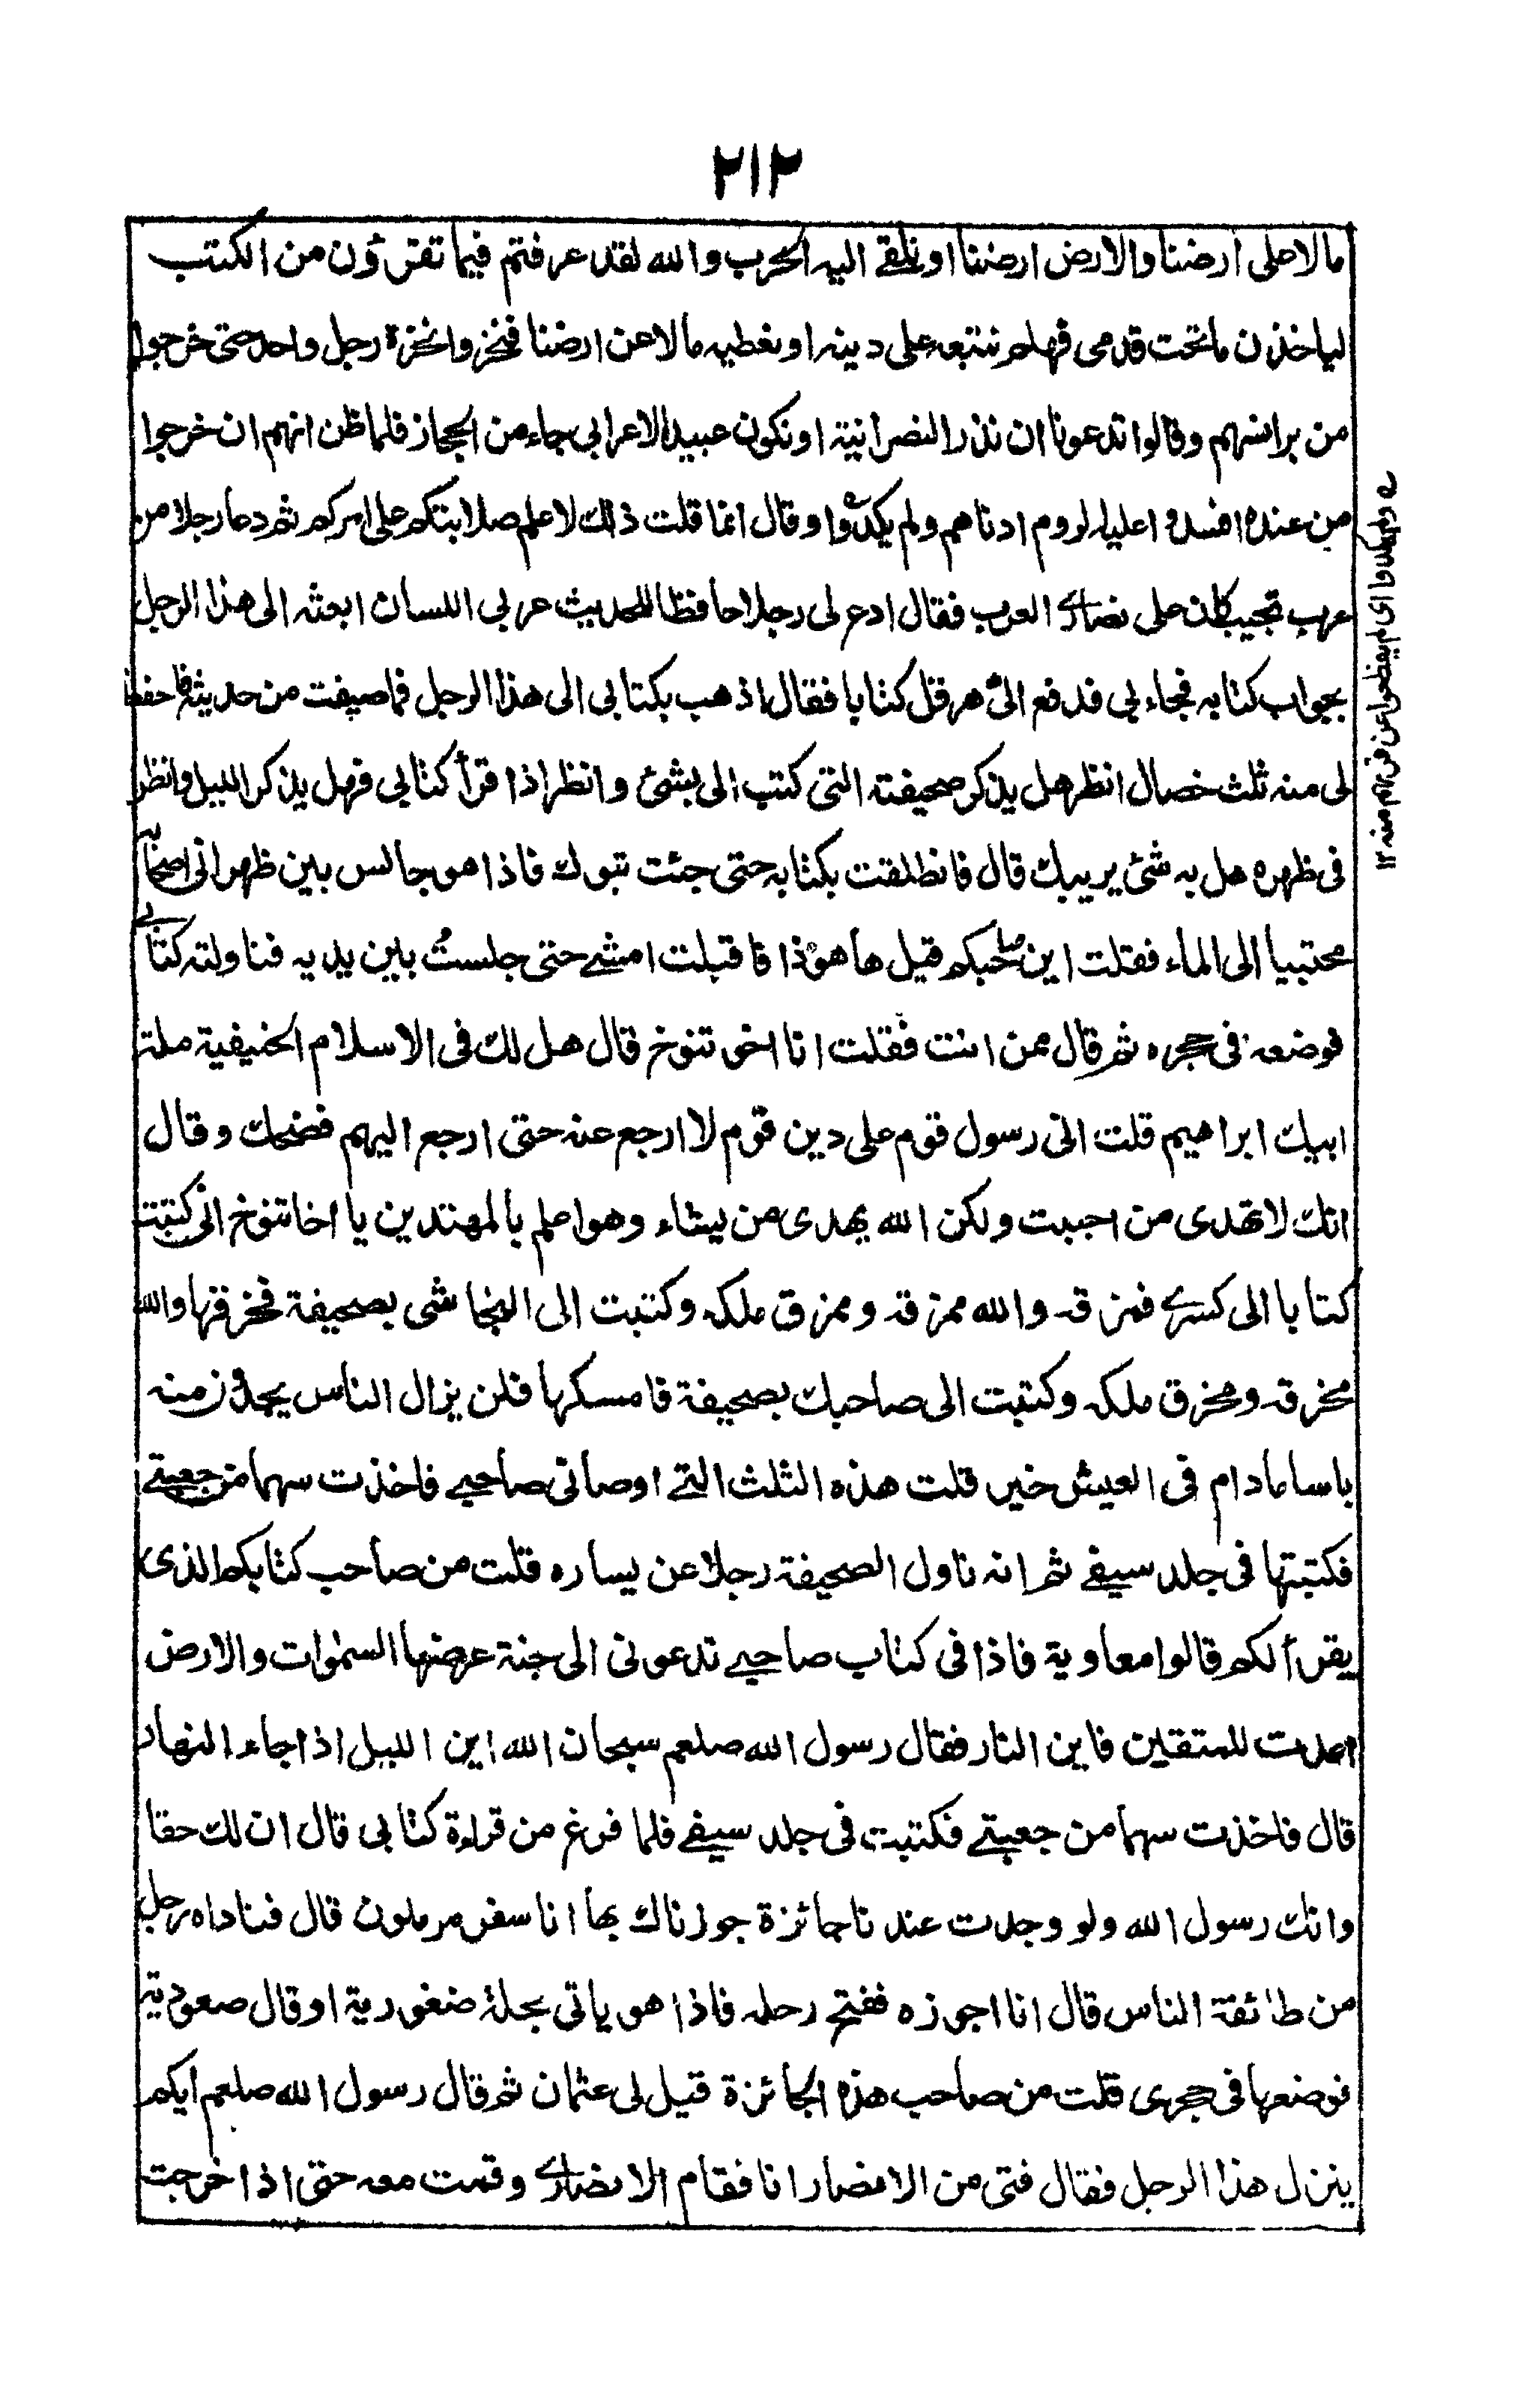 ٢١٢
مالا على ارضنا والارض ارضنا او نلقے اليه الحرب والله لقد عرفتم فيما تقرؤن من الكتب
لياخذن ما تحت قدمى فهلم نتبعه على دينه او نعطيه مالا عن ارضنا فنخروا نخرة رجل واحد حتى خرجوا
من برانسهم وقالوا تدعونا ان نذر النصرانية او نكون عبيدا لاعرابى جاء من الحجاز فلما ظن انهم ان خرجوا
من عنده افسدوا عليه لروم ادناهم ولم يكدوا وقال انما قلت ذلك لاعلم صلابتكم على امركم ثم دعا رجلا من
عرب تجيب كان على نصارے العرب فقال ادع لى رجلا حافظا للحديث عربى اللسان ابعثه الى هذا الرجل
بجواب كتابه فجاء بى فدفع الىّ هرقل كتابا فقال اذهب بكتابى الى هذا الرجل فما صيفت من حديثه فاحفظ
لى منه ثلث خصال انظر هل يذكر صحيفته التى كتب الى بشئ وانظر اذا قرأ كتابى فهل يذكر الليل وانظر
فى ظهره هل به شئ يريبك قال فانطلقت بكتابه حتى جئت تبوك فاذا هو جالس بين ظهرانى اصحابه
محتبيا الى الماء فقلت اين صاحبكم قيل ها هو ذا فاقبلت امشے حتى جلستُ بين يديه فناولته كتابے
فوضعه فى حجره ثم قال ممن انت فقلت انا اخو تنوخ قال هل لك فى الاسلام الحنيفية ملة
ابيك ابراهيم قلت انى رسول قوم على دين قوم لا ارجع عنه حتى ارجع اليهم فضحك وقال
انك لا تهدى من احببت ولكن الله يهدى من يشاء وهو اعلم بالمهتدين يا اخا تنوخ انى كتبت
كتابا الى كسرے فمزقه والله ممزقه وممزق ملكه وكتبت الى النجاشى بصحيفة فخرقها والله
مخرقه ومخرق ملكه وكتبت الى صاحبك بصحيفة فامسكها فلن يزال الناس يجدون منه
باسا ما دام فى العيش خير قلت هذه الثلث التے اوصانى صاحبے فاخذت سهما من جعبتے
فكتبتها فى جلد سيفے ثم انه ناول الصحيفة رجلا عن يساره قلت من صاحب كتابكم الذى
يقرأ لكم قالوا معاوية فاذا فى كتاب صاحبے تدعونى الى جنة عرضها السمٰوات والارض
اعدت للمتقين فاين النار فقال رسول الله صلعم سبحان الله اين الليل اذا جاء النهار
قال فاخذت سهما من جعبتے فكتبت فى جلد سيفے فلما فرغ من قراءة كتابى قال ان لك حقا
وانك رسول الله ولو وجدت عندنا جائزة جوزناك بها انا سفر مرملون قال فناداه رجل
من طائفة الناس قال انا اجوزه ففتح رحله فاذا هو ياتى بحلة ضغورية او قال صعورية
فوضعها فى حجرى قلت من صاحب هذه الجائزة قيل لى عثمان ثم قال رسول الله صلعم ايكم
ينزل هذا الرجل فقال فتى من الانصار انا فقام الانصارے وقمت معه حتى اذا خرجت